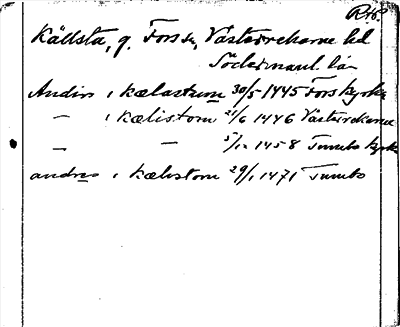 RAp.
Källsta, g. Fors sn, Västerrekarne hd
Södermanl. län
Andirs i kælastum 30/5 1445 Fors kyrka
— i kælistom 21/6 1446 Västerrekarne
— — 5/12 1458 Tumbo kyrka
andres i kælistom 29/1 1471 Tumbo